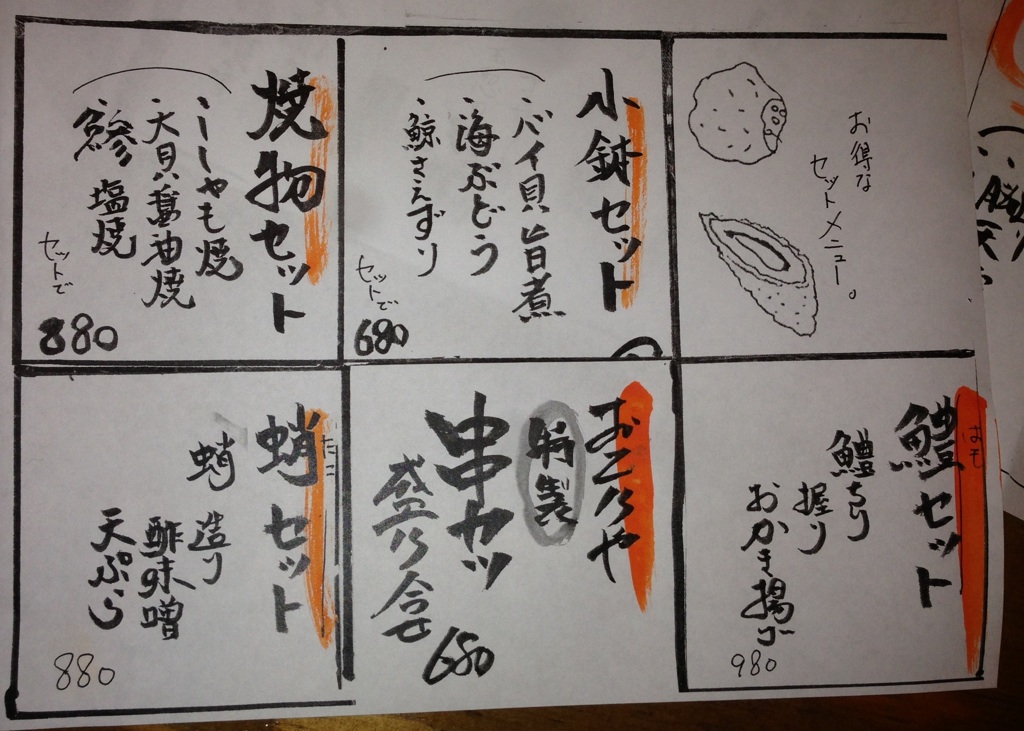 お得な
セットメニュー。
小鉢セット
・バイ貝旨煮
・海ぶどう
・鯨さえずり
セットで
680
焼物セット
・ししゃも焼
・大貝醤油焼
・鯵塩焼
セットで
880
鱧セット
はも
鱧ちり
握り
おかき揚げ
980
おこりや
特製
串カツ
盛り合せ
680
蛸セット
たこ
蛸
造り
酢味噌
天ぷら
880